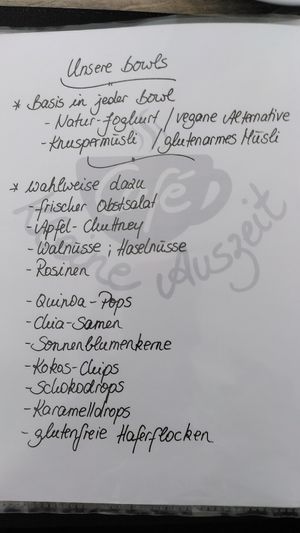 Unsere bowls
* Basis in jeder Bowl
- Natur-Joghurt / vegane Alternative
- Knuspermüsli / glutenarmes Müsli
* wahlweise dazu
- frischer Obstsalat
- Apfel-Chuttney
- Walnüsse ; Haselnüsse
- Rosinen
- Quinoa-Pops
- Chia-Samen
- Sonnenblumenkerne
- Kokos-Chips
- Schokodrops
- Karamelldrops
- glutenfreie Haferflocken
Café
Auszeit